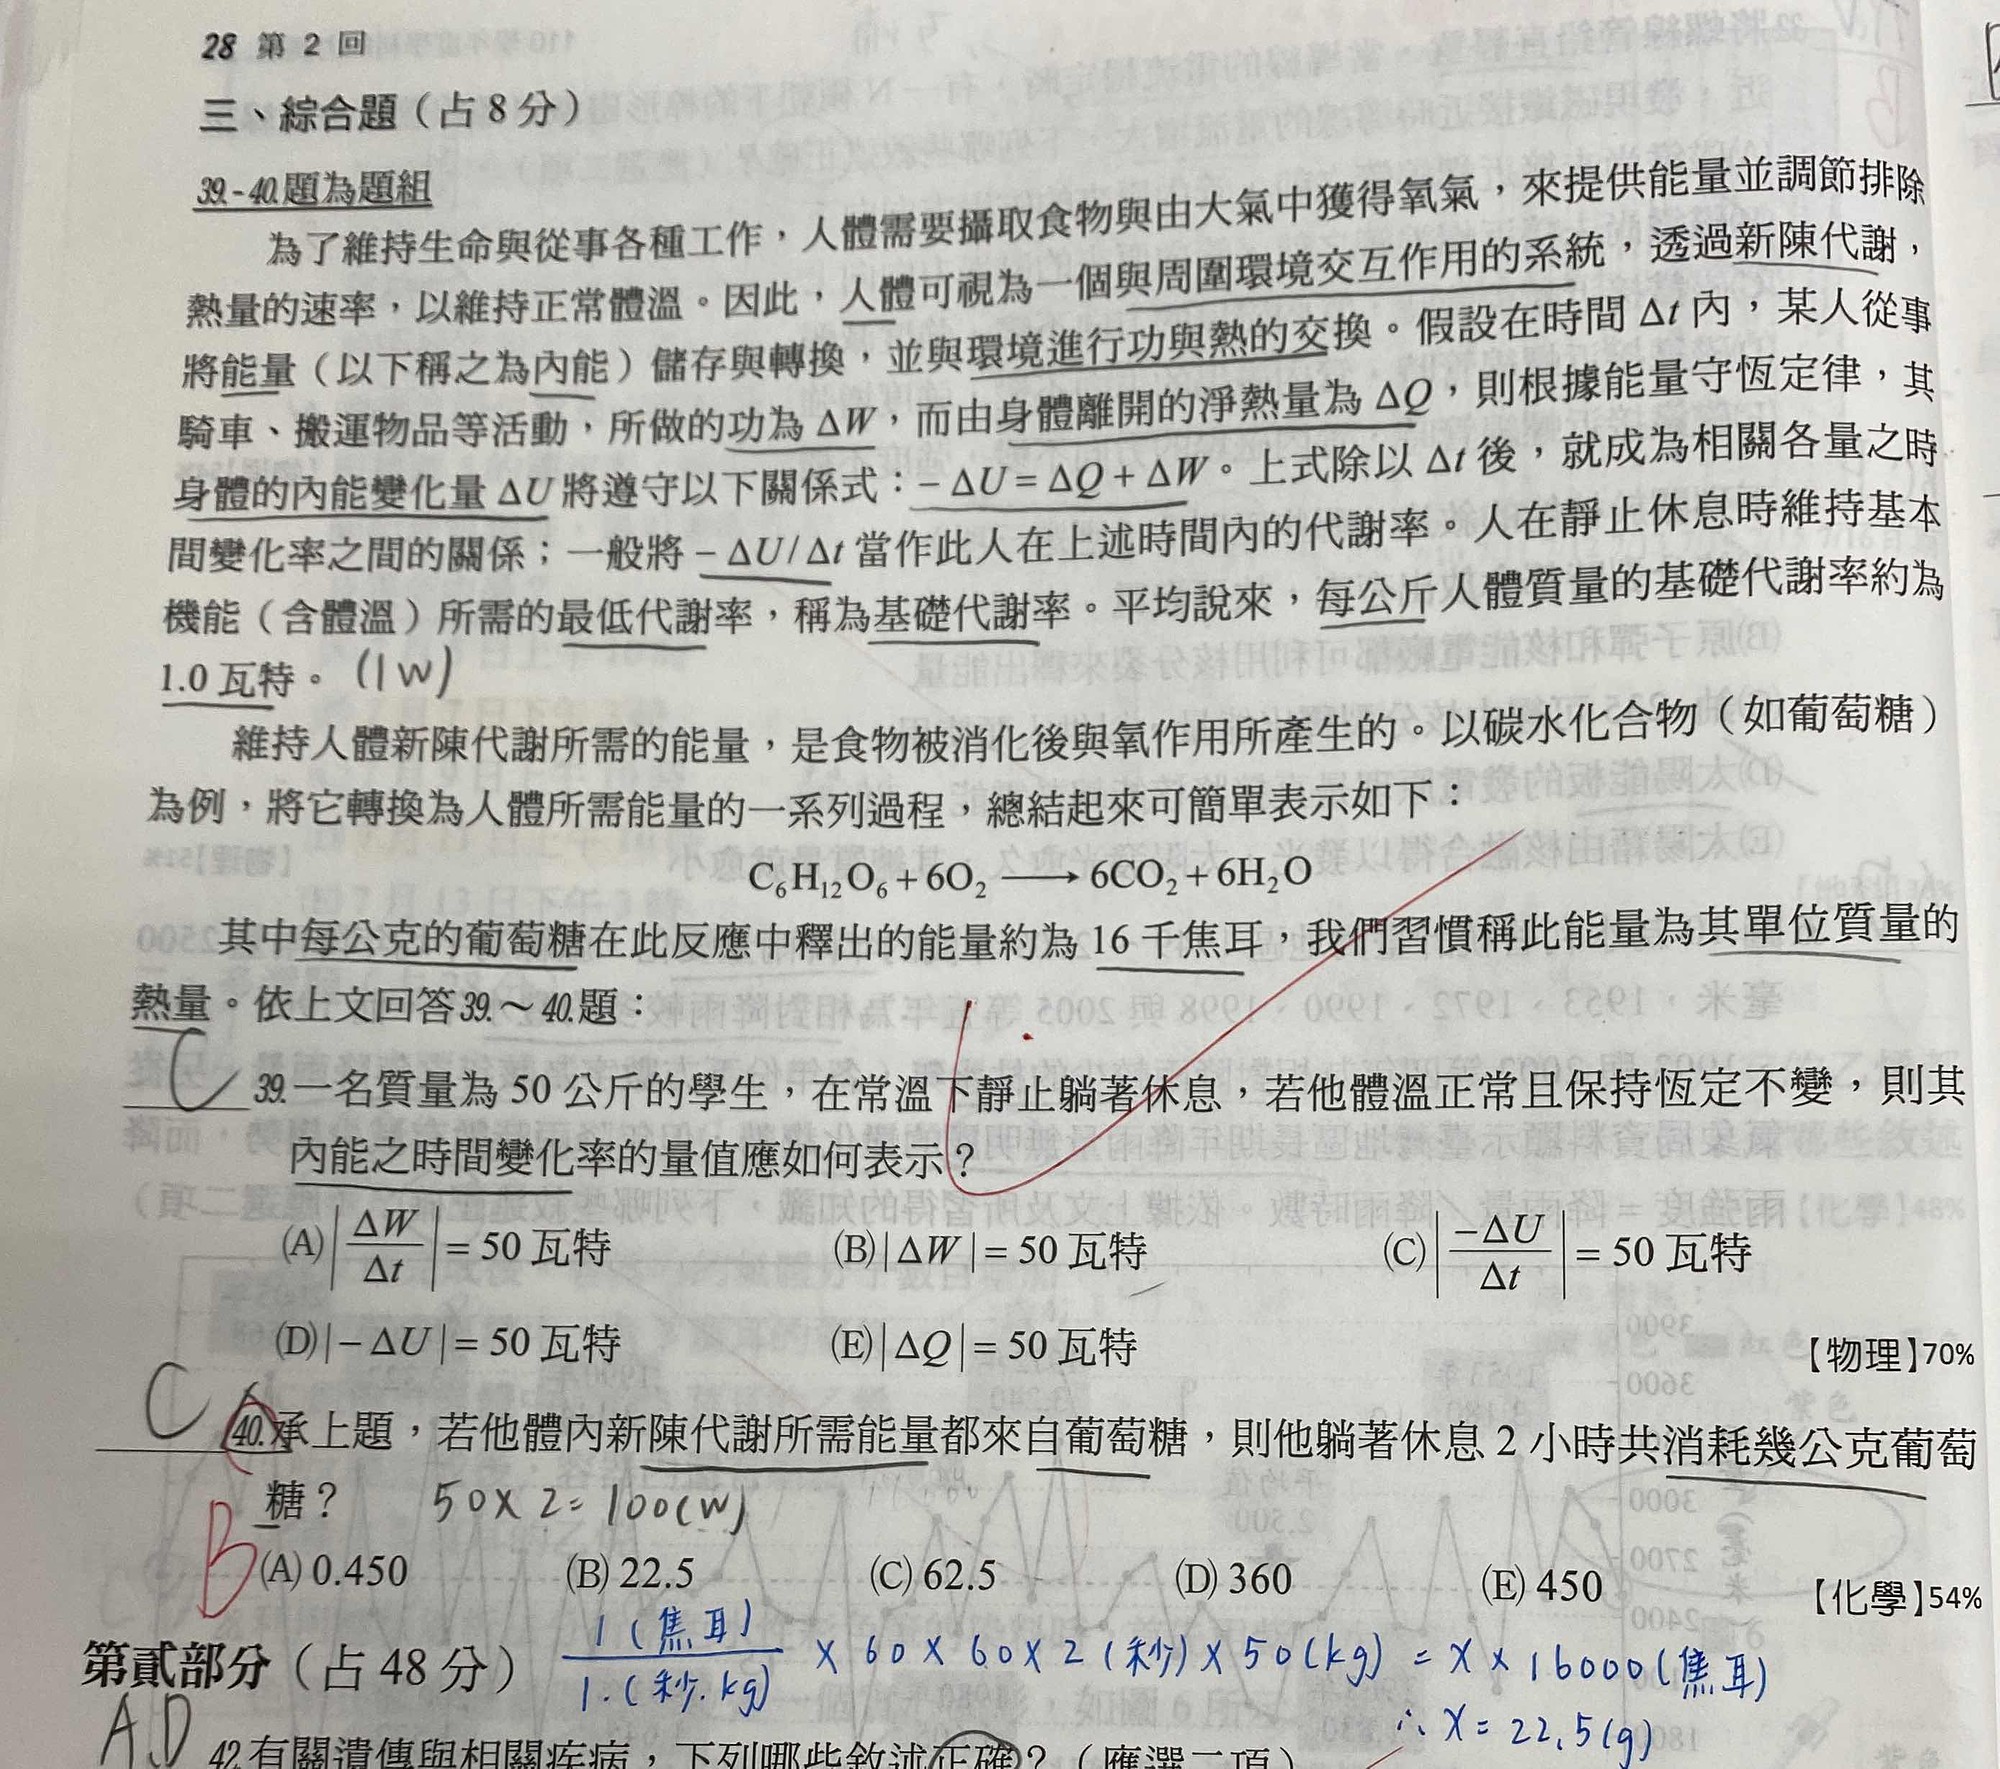 28 第 2 回
三、綜合題（占 8 分）
39.-40.題為題組
為了維持生命與從事各種工作，人體需要攝取食物與由大氣中獲得氧氣，來提供能量並調節排除
熱量的速率，以維持正常體溫。因此，人體可視為一個與周圍環境交互作用的系統，透過新陳代謝，
將能量（以下稱之為內能）儲存與轉換，並與環境進行功與熱的交換。假設在時間 Δt 內，某人從事
騎車、搬運物品等活動，所做的功為 ΔW，而由身體離開的淨熱量為 ΔQ，則根據能量守恆定律，其
身體的內能變化量 ΔU 將遵守以下關係式：－ΔU = ΔQ + ΔW。上式除以 Δt 後，就成為相關各量之時
間變化率之間的關係；一般將 －ΔU / Δt 當作此人在上述時間內的代謝率。人在靜止休息時維持基本
機能（含體溫）所需的最低代謝率，稱為基礎代謝率。平均說來，每公斤人體質量的基礎代謝率約為
1.0 瓦特。 (1W)
維持人體新陳代謝所需的能量，是食物被消化後與氧作用所產生的。以碳水化合物（如葡萄糖）
為例，將它轉換為人體所需能量的一系列過程，總結起來可簡單表示如下：
C₆H₁₂O₆ + 6O₂ ⟶ 6CO₂ + 6H₂O
其中每公克的葡萄糖在此反應中釋出的能量約為 16 千焦耳，我們習慣稱此能量為其單位質量的
熱量。依上文回答39.～40.題：
C 39.一名質量為 50 公斤的學生，在常溫下靜止躺著休息，若他體溫正常且保持恆定不變，則其
內能之時間變化率的量值應如何表示？
(A)|ΔW/Δt| = 50 瓦特 (B)|ΔW| = 50 瓦特 (C)|−ΔU/Δt| = 50 瓦特
(D)|−ΔU| = 50 瓦特 (E)|ΔQ| = 50 瓦特 【物理】70%
C 40.承上題，若他體內新陳代謝所需能量都來自葡萄糖，則他躺著休息 2 小時共消耗幾公克葡萄
糖？ 50×2=100(W)
B (A) 0.450 (B) 22.5 (C) 62.5 (D) 360 (E) 450 【化學】54%
第貳部分（占 48 分） 1(焦耳)/1.(秒.kg) × 60 × 60 × 2 (秒) × 50(kg) = x × 16000(焦耳)
∴ x = 22.5(g)
A.D 42.有關遺傳與相關疾病，下列哪些敘述正確？（應選二項）